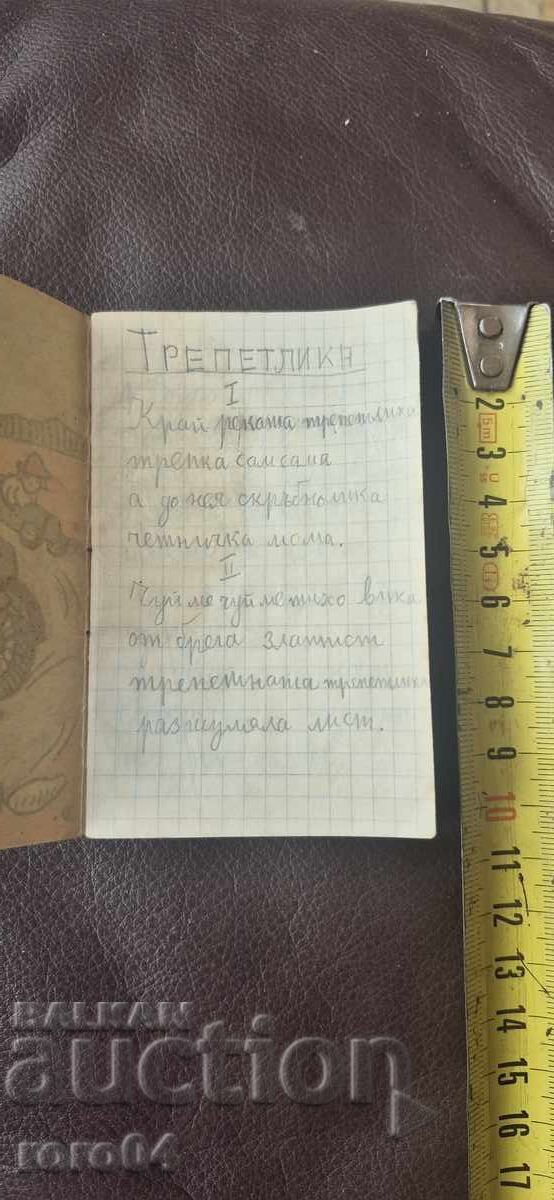 ТРЕПЕТЛИКА
I
Край реката трепетлика
трепка самсама
а до нея скръбнолика
четничка мома.
II
Чуй ме чуй ме тихо вика
от брега златист
трепетната трепетлика
разшумяла лист.
2
3
4
5
6
7
8
9
10
11
12
13
14
15
16
17
BALKAN
auction
roro04